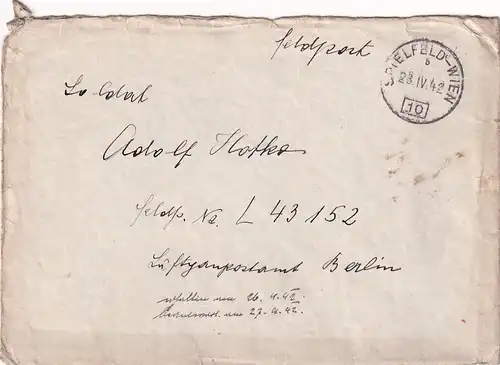 Feldpost
SPIELFELD-WIEN
b
23.IV.42
10
Soldat
Adolf Hotko
Feldp. Nr. L 43 152
Luftgaupostamt Berlin
erhalten am 26.4.42.
beantwort. am 27.4.42.